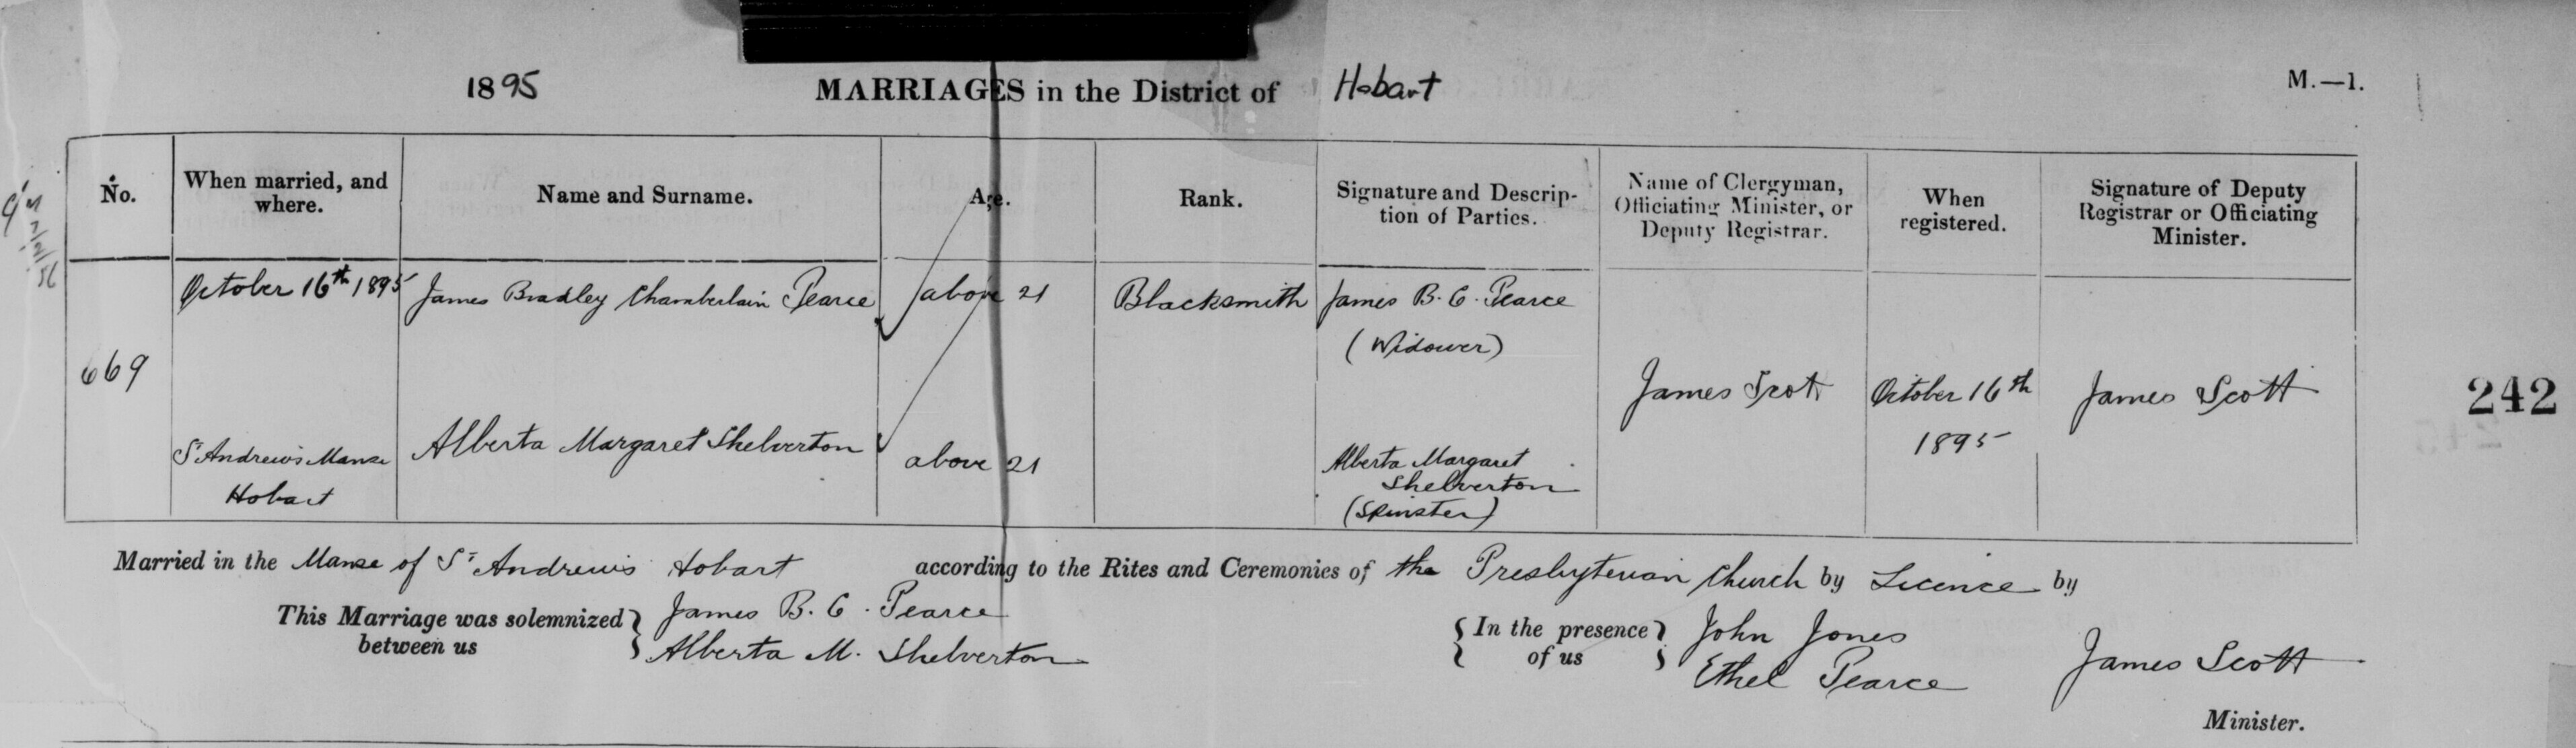 1895 MARRIAGES in the District of Hobart M.—1.
No. When married, and where. Name and Surname. Age. Rank. Signature and Description of Parties. Name of Clergyman, Officiating Minister, or Deputy Registrar. When registered. Signature of Deputy Registrar or Officiating Minister.
October 16th 1895 James Bradley Chamberlain Pearce above 21 Blacksmith James B. C. Pearce
(Widower)
669 James Scott October 16th 1895 James Scott 242
St Andrew's Manse Hobart Alberta Margaret Shelverton above 21 Alberta Margaret Shelverton
(Spinster)
Married in the Manse of St Andrew's Hobart according to the Rites and Ceremonies of the Presbyterian Church by Licence by
This Marriage was solemnized between us James B. C. Pearce
Alberta M. Shelverton
In the presence of us John Jones
Ethel Pearce
James Scott
Minister.